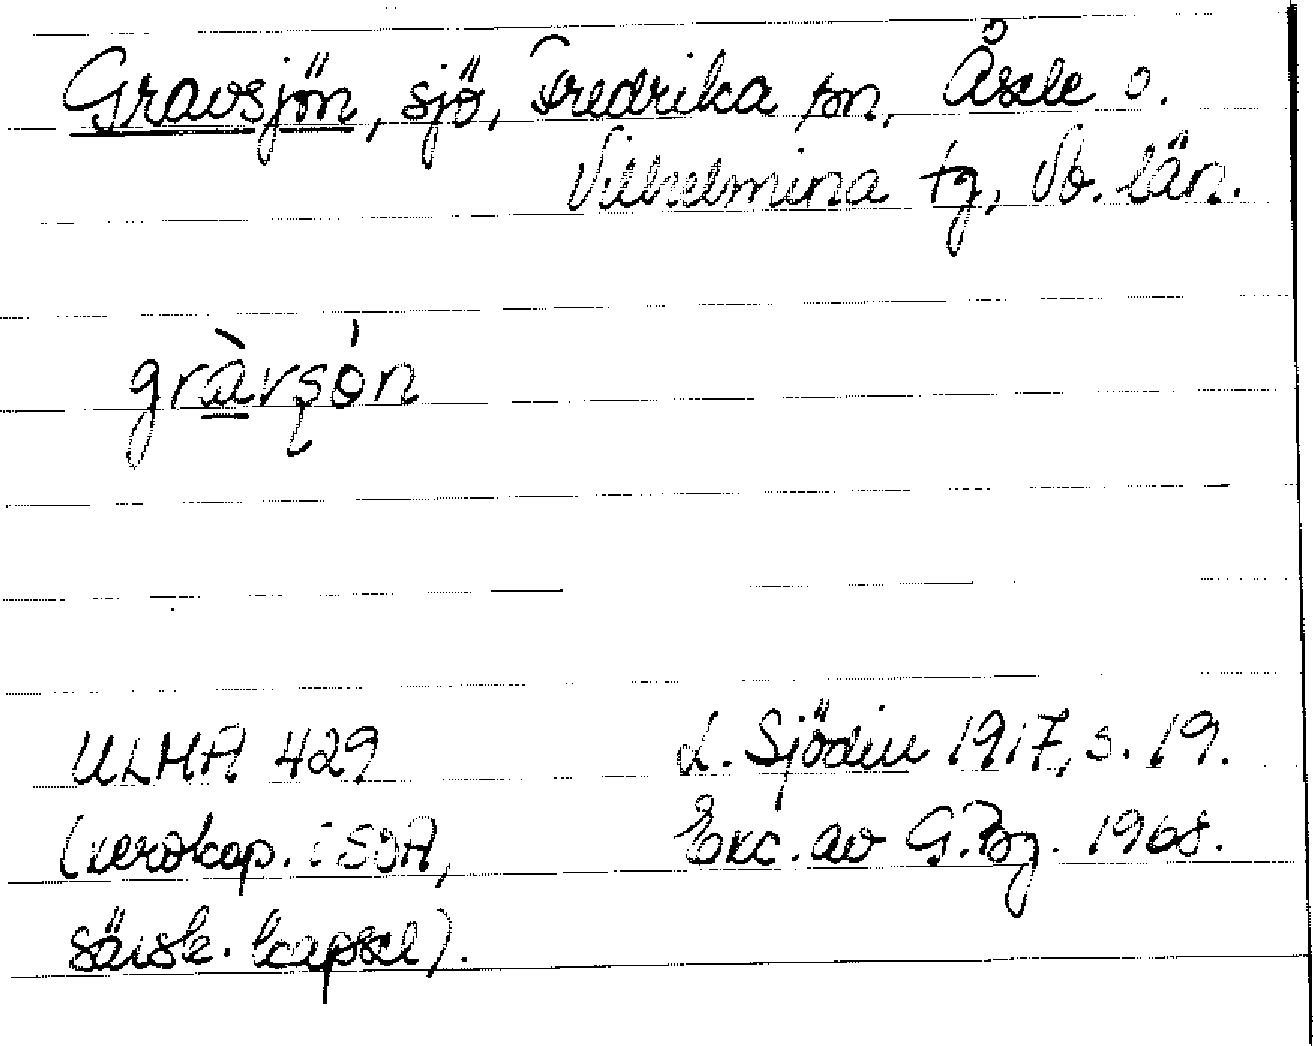 Gravsjön, sjö, Fredrika sn, Åsele o.
Vilhelmina tg, Vb. län.
gràvsón
ULMA 429
(xerokop. i SOA,
särsk. kapsel).
L. Sjödin 1917, s. 19.
Exc. av G. Bg. 1968.